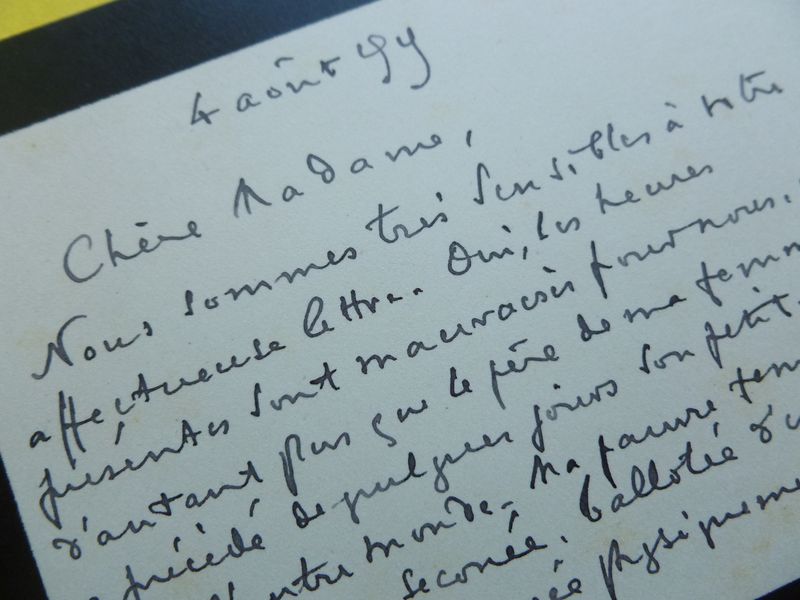 4 août 99
Chère Madame,
Nous sommes très sensibles à votre
affectueuse lettre. Oui, les heures
présentes sont mauvaises pour nous.
d'autant plus que le père de ma femme
a précédé de quelques jours son petit-
l'autre monde. Ma pauvre fem
secouée, ballotée d'u
physiqueme